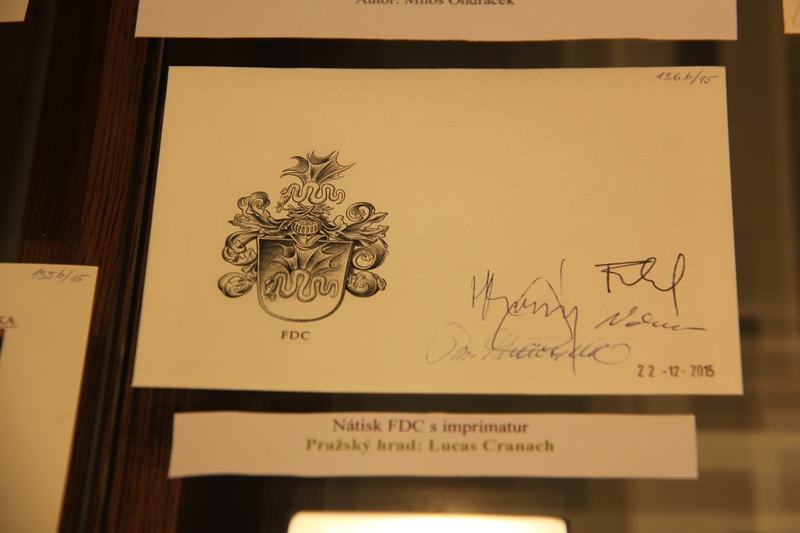 Autor: Miloš Ondráček
136b/15
135b/15
KA
FDC
22 -12- 2015
Nátisk FDC s imprimatur
Pražský hrad: Lucas Cranach